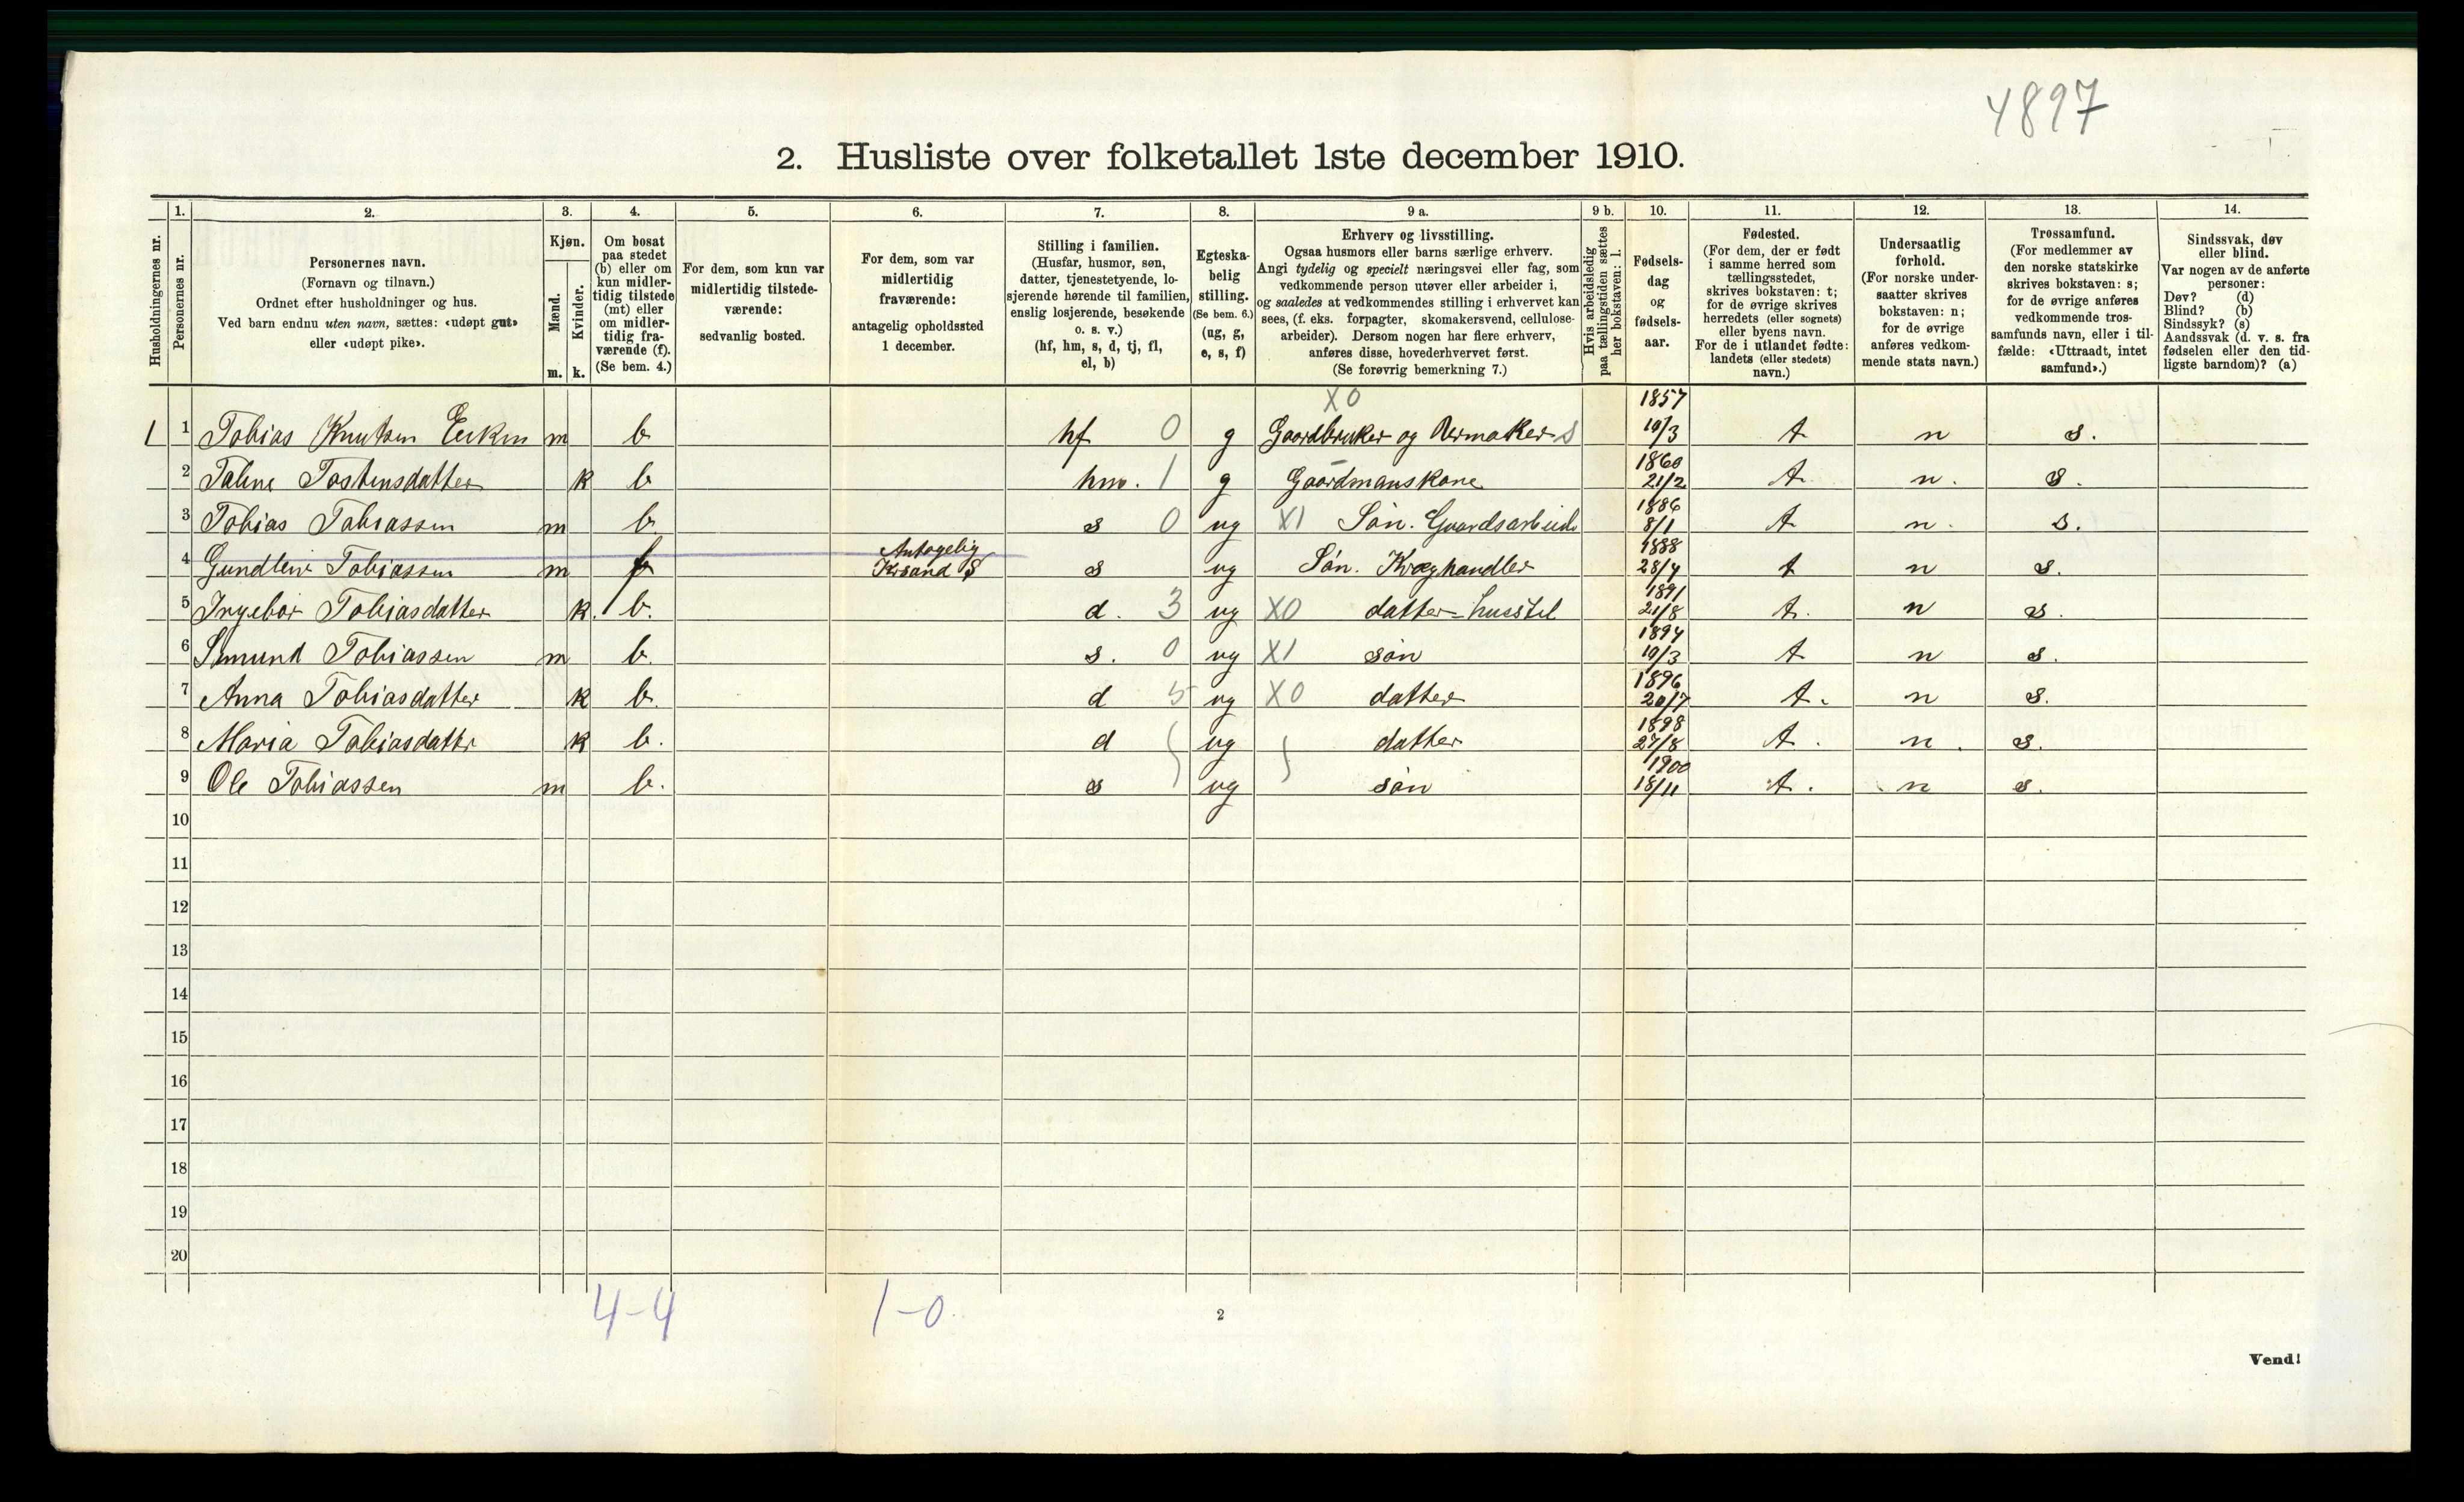 4897
2. Husliste over folketallet 1ste december 1910.
Husholdningernes nr.
1.
Personernes nr.
2.
Personernes navn.
(Fornavn og tilnavn.)
Ordnet efter husholdninger og hus.
Ved barn endnu uten navn, sættes: «udøpt gut»
eller «udøpt pike».
3.
Kjøn.
Mænd.
Kvinder.
m. k.
4.
Om bosat
paa stedet
(b) eller om
kun midler-
tidig tilstede
(mt) eller
om midler-
tidig fra-
værende (f).
(Se bem. 4.)
5.
For dem, som kun var
midlertidig tilstede-
værende:
sedvanlig bosted.
6.
For dem, som var
midlertidig
fraværende:
antagelig opholdssted
1 december.
7.
Stilling i familien.
(Husfar, husmor, søn,
datter, tjenestetyende, lo-
sjerende hørende til familien,
enslig losjerende, besøkende
o. s. v.)
(hf, hm, s, d, tj, fl,
el, b)
8.
Egteska-
belig
stilling.
(Se bem. 6.)
(ug, g,
e, s, f)
9 a.
Erhverv og livsstilling.
Ogsaa husmors eller barns særlige erhverv.
Angi tydelig og specielt næringsvei eller fag, som
vedkommende person utøver eller arbeider i,
og saaledes at vedkommendes stilling i erhvervet kan
sees, (f. eks. forpagter, skomakersvend, cellulose-
arbeider). Dersom nogen har flere erhverv,
anføres disse, hovederhvervet først.
(Se forøvrig bemerkning 7.)
9 b.
Hvis arbeidsledig
paa tællingstiden sættes
her bokstaven: l.
10.
Fødsels-
dag
og
fødsels-
aar.
11.
Fødested.
(For dem, der er født
i samme herred som
tællingsstedet,
skrives bokstaven: t;
for de øvrige skrives
herredets (eller sognets)
eller byens navn.
For de i utlandet fødte:
landets (eller stedets)
navn.)
12.
Undersaatlig
forhold.
(For norske under-
saatter skrives
bokstaven: n;
for de øvrige
anføres vedkom-
mende stats navn.)
13.
Trossamfund.
(For medlemmer av
den norske statskirke
skrives bokstaven: s;
for de øvrige anføres
vedkommende tros-
samfunds navn, eller i til-
fælde: «Uttraadt, intet
samfund».)
14.
Sindssvak, døv
eller blind.
Var nogen av de anførte
personer:
Døv? (d)
Blind? (b)
Sindssyk? (s)
Aandssvak (d. v. s. fra
fødselen eller den tid-
ligste barndom)? (a)
X0 1857
1 1 Tobias Knutsen m b hf 0 g Gaardbruker og s 19/3 t n s.
1860
2 Taline Tostensdatter k b hm. 1 g Gaardmanskone 21/2 t n. s.
1886
3 Tobias Tobiassen m b. s 0 ug X1 Søn. Gaardsarbeide 8/1 t n. s.
Antagelig 1888
4 Gundleiv Tobiassen m f Krsand S s ug Søn. Kræghandler 28/4 t n s.
1891
5 Ingebor Tobiasdatter k. b. d. 3 ug X0 datter - husstel 21/8 t. n s.
1894
6 Simund Tobiassen m b. s. 0 ug X1 søn 19/3 t n s.
1896
7 Anna Tobiasdatter k b. d 5 ug X0 datter 20/7 t. n s.
1898
8 Maria Tobiasdatter k b. d ug datter 27/8 t. n. s.
1900
9 Ole Tobiassen m b. s ug søn 18/11 t. n s.
10
11
12
13
14
15
16
17
18
19
20
4-4 1-0.
2
Vend!